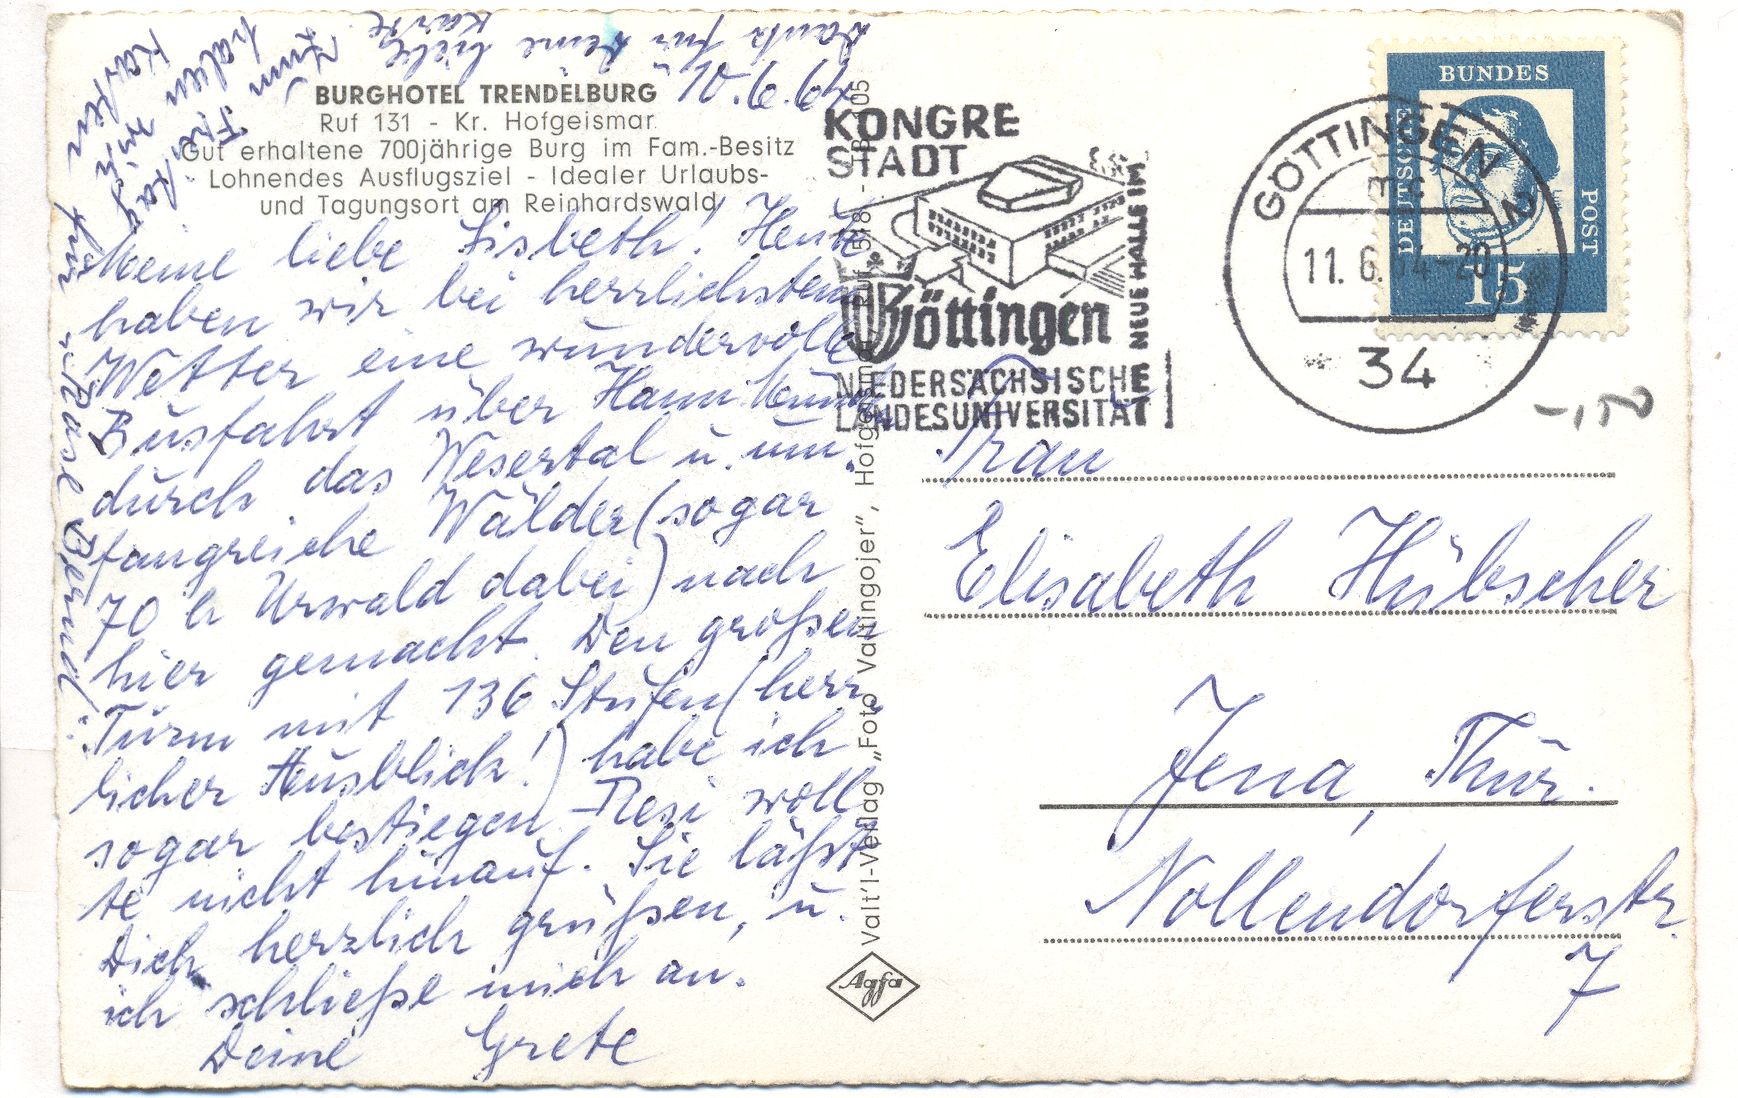 Dank für Deine liebe
Karte
10.6.64
BURGHOTEL TRENDELBURG
Ruf 131 - Kr. Hofgeismar
Gut erhaltene 700jährige Burg im Fam.-Besitz
Lohnendes Ausflugsziel - Idealer Urlaubs-
und Tagungsort am Reinhardswald
Meine liebe Lisbeth! Heute
haben wir bei herrlichstem
Wetter eine wundervolle
Busfahrt über Hann Münd
durch das Wesertal u. um-
fangreiche Wälder (sogar
70 h Urwald dabei) nach
hier gemacht. Den großen
Turm mit 136 Stufen (herr-
licher Ausblick!) habe ich
sogar bestiegen - Resi woll
te nicht hinauf. Sie läßt
Dich herzlich grüßen, u.
ich schließe mich an.
Deine Grete
Zum Freitag
haben wir
Karten für
"Rasl Bernd".
Valt'l-Verlag „Foto Valtingojer", Hofgeismar, Ruf 518 - B 405
Agfa
KONGRE
STADT
Göttingen
NEUE HALLE IM
NIEDERSÄCHSISCHE
LANDESUNIVERSITÄT
GÖTTINGEN 2
mc
11. 6. 64-20
34
DEUTSCHE
BUNDES
POST
15
-,50
Frau
Elisabeth Hübscher
Jena, Thür.
Nollendorferstr.
7